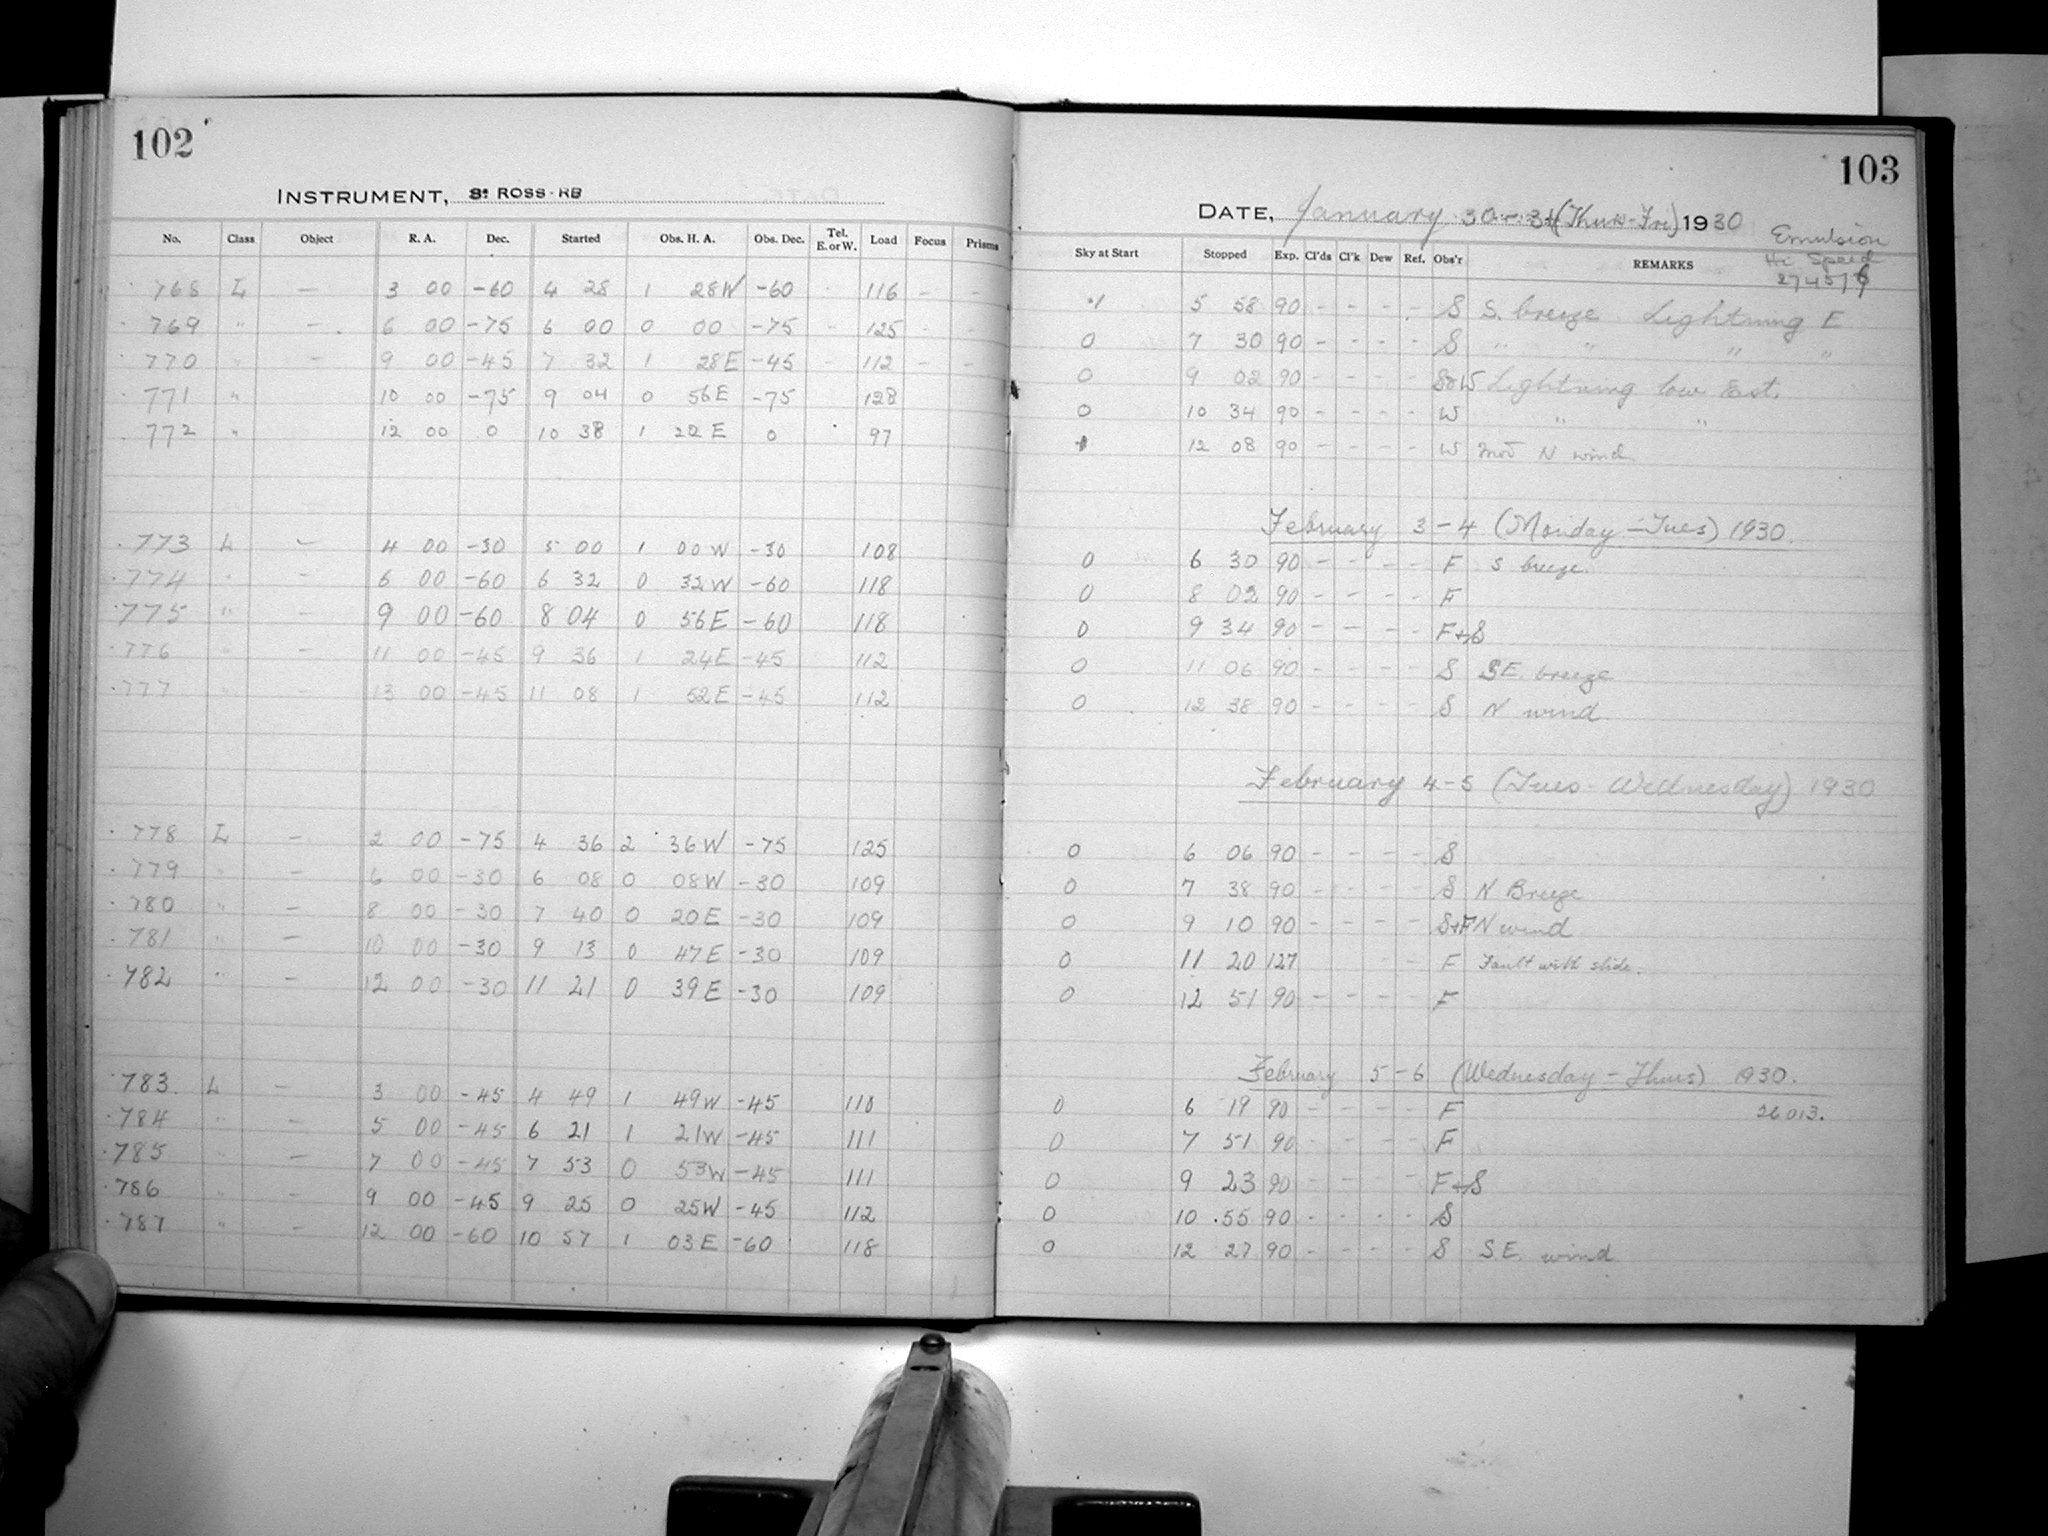 102
INSTRUMENT, ROSS·RB
No. Class Object R. A. Dec. Started Obs. H. A. Obs. Dec. Tel. E. or W. Load Focus Prisms
768 L — 3 00 -60 4 28 1 28W -60 - 116 - -
769 " - 6 00 -75 6 00 0 00 -75 - 125 - -
770 " - 9 00 -45 7 32 1 28E -45 - 112 - -
771 " 10 00 -75 9 04 0 56E -75 128
772 " 12 00 0 10 38 1 22E 0 97
773 L - 4 00 -30 5 00 1 00W -30 108
774 " - 6 00 -60 6 32 0 32W -60 118
775 " - 9 00 -60 8 04 0 56E -60 118
776 " - 11 00 -45 9 36 1 24E -45 112
777 " - 13 00 -45 11 08 1 52E -45 112
778 L - 2 00 -75 4 36 2 36W -75 125
779 " - 6 00 -30 6 08 0 08W -30 109
780 " - 8 00 -30 7 40 0 20E -30 109
781 " - 10 00 -30 9 13 0 47E -30 109
782 " - 12 00 -30 11 21 0 39E -30 109
783 L - 3 00 -45 4 49 1 49W -45 110
784 " - 5 00 -45 6 21 1 21W -45 111
785 " - 7 00 -45 7 53 0 53W -45 111
786 " - 9 00 -45 9 25 0 25W -45 112
787 " - 12 00 -60 10 57 1 03E -60 118
103
DATE, January 30-31 (Thurs-Fri) 1930
Emulsion
Hi Speed
Sky at Start Stopped Exp. Cl'ds Cl'k Dew Ref. Obs'r REMARKS
5 58 90 - - - - S S. breeze Lightning E
0 7 30 90 - - - - S " " " "
0 9 02 90 - - - - S&W Lightning low East.
0 10 34 90 - - - - W " "
12 08 90 - - - - W Mod N wind
February 3-4 (Monday-Tues) 1930.
0 6 30 90 - - - - F S breeze
0 8 02 90 - - - - F
0 9 34 90 - - - - F+S
0 11 06 90 - - - - S SE. breeze
0 12 38 90 - - - - S N wind
February 4-5 (Tues-Wednesday) 1930
0 6 06 90 - - - - S
0 7 38 90 - - - - S N Breeze
0 9 10 90 - - - - S+F N wind
0 11 20 127 - - F Fault with slide.
0 12 51 90 - - - - F
February 5-6 (Wednesday-Thurs) 1930.
0 6 19 90 - - - - F 26013.
0 7 51 90 - - - - F
0 9 23 90 - - - - F+S
0 10 55 90 - - - - S
0 12 27 90 - - - - S S.E. wind